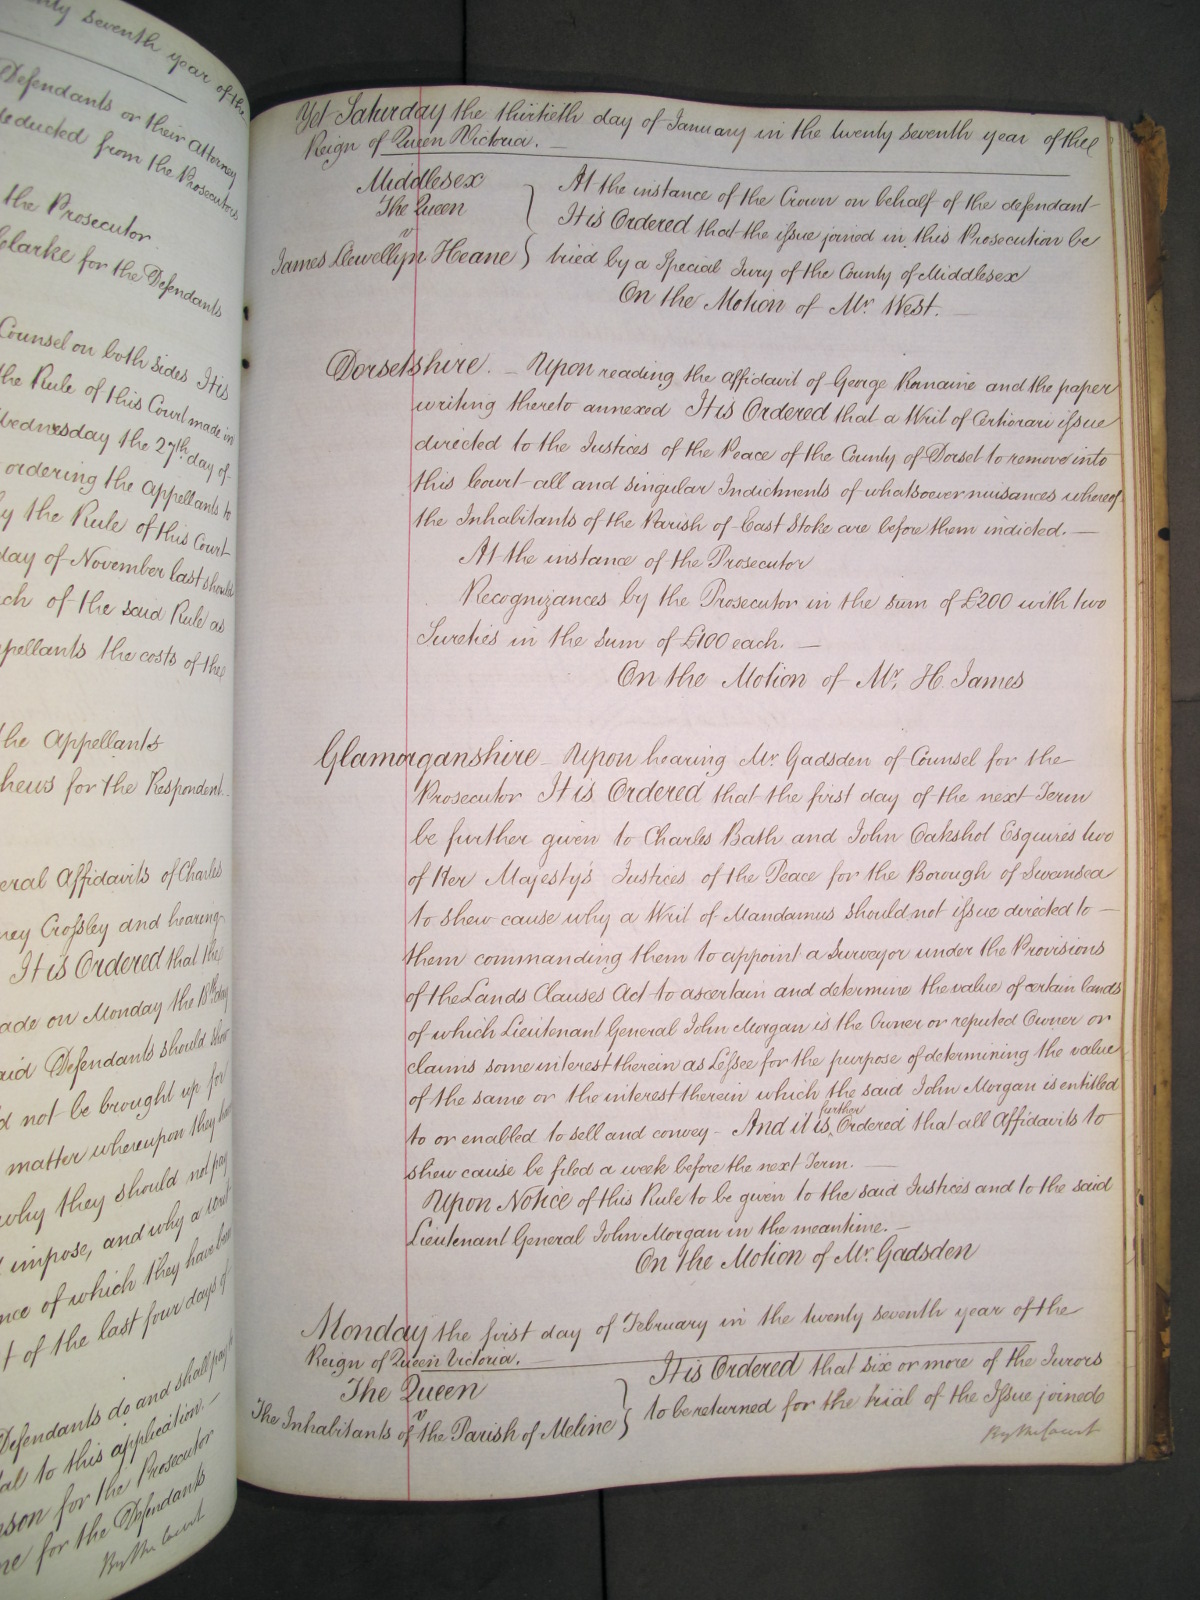 nty seventh year of the
Defendants or their Attorney
deducted from the Prosecutors
the Prosecutor.
Clarke for the Defendants
Counsel on both sides It is
the Rule of this Court made in
Wednesday the 27th day of
ordering the Appellants to
y the Rule of this Court
day of November last should
ch of the said Rule as
ppellants the costs of the
the Appellants
hews for the Respondent.
eral Affidavits of Charles
ney Crossley and hearing
It is Ordered that the
ade on Monday the 18th day
aid Defendants should shew
d not be brought up for
matter whereupon they have
why they should not pay
impose, and why a Writ
nce of which they have been
t of the last four days of
Defendants do and shall pay
tal to this application.—
nson for the Prosecutor
ne for the Defendants
By the Court
Yet Saturday the thirtieth day of January in the twenty seventh year of the
Reign of Queen Victoria.—
Middlesex
The Queen
v
James Llewellyn Heane
At the instance of the Crown on behalf of the defendant
It is Ordered that the issue joined in this Prosecution be
tried by a Special Jury of the County of Middlesex
On the Motion of Mr. West.—
Dorsetshire.— Upon reading the affidavit of George Romaine and the paper
writing thereto annexed It is Ordered that a Writ of Certiorari issue
directed to the Justices of the Peace of the County of Dorset to remove into
this Court all and singular Indictments of whatsoever nuisances whereof
the Inhabitants of the Parish of East Stoke are before them indicted.—
At the instance of the Prosecutor
Recognizances by the Prosecutor in the sum of £200 with two
Sureties in the sum of £100 each.—
On the Motion of Mr. H. James
Glamorganshire— Upon hearing Mr. Gadsden of Counsel for the
Prosecutor It is Ordered that the first day of the next Term
be further given to Charles Bath and John Oakshot Esquires two
of Her Majesty's Justices of the Peace for the Borough of Swansea
to shew cause why a Writ of Mandamus should not issue directed to—
them commanding them to appoint a Surveyor under the Provisions
of the Lands Clauses Act to ascertain and determine the value of certain lands
of which Lieutenant General John Morgan is the Owner or reputed Owner or
claims some interest therein as Lessee for the purpose of determining the value
of the same or the interest therein which the said John Morgan is entitled
to or enabled to sell and convey— And it is further Ordered that all Affidavits to
shew cause be filed a week before the next Term.—
Upon Notice of this Rule to be given to the said Justices and to the said
Lieutenant General John Morgan in the meantime.—
On the Motion of Mr. Gadsden
Monday the first day of February in the twenty seventh year of the
Reign of Queen Victoria.—
The Queen
v
The Inhabitants of the Parish of Meline
It is Ordered that six or more of the Jurors
to be returned for the trial of the Issue joined
By the Court